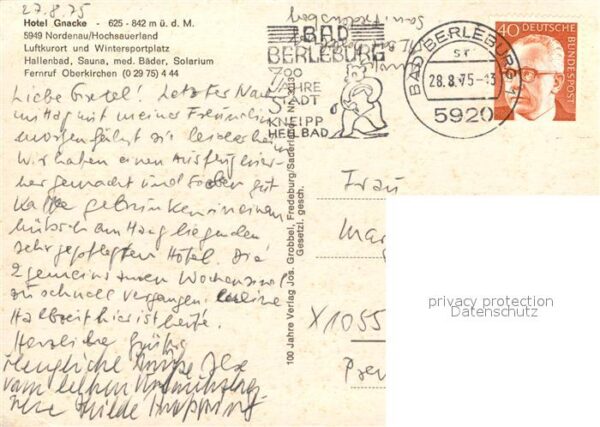 27.8.75
Hotel Gnacke - 625 - 842 m ü. d. M.
5949 Nordenau/Hochsauerland
Luftkurort und Wintersportplatz
Hallenbad, Sauna, med. Bäder, Solarium
Fernruf Oberkirchen (0 29 75) 4 44
Liebe Gretel! Letzter Nach
mittag mit meiner Freundin
morgen fährt sie leider heim
Wir haben einen Ausflug hier-
her gemacht und haben gut
Kaffee getrunken in einem
hübsch am Hang liegenden
sehr gepflegten Hotel. Die
2 gemeinsamen Wochen sind
zu schnell vergangen. Meine
Halbzeit hier ist heute.
Herzliche Grüße
Herzliche Grüße
vom
100 Jahre Verlag Jos. Grobbel, Fredeburg/Sauerland
Gesetzl. gesch.
BAD
BERLEBURG
700
JAHRE
STADT
KNEIPP
HEILBAD
BAD BERLEBURG 1
sr
28.8.75-13
5920
40 DEUTSCHE
BUNDESPOST
Frau
Mar
X1055
privacy protection
Datenschutz